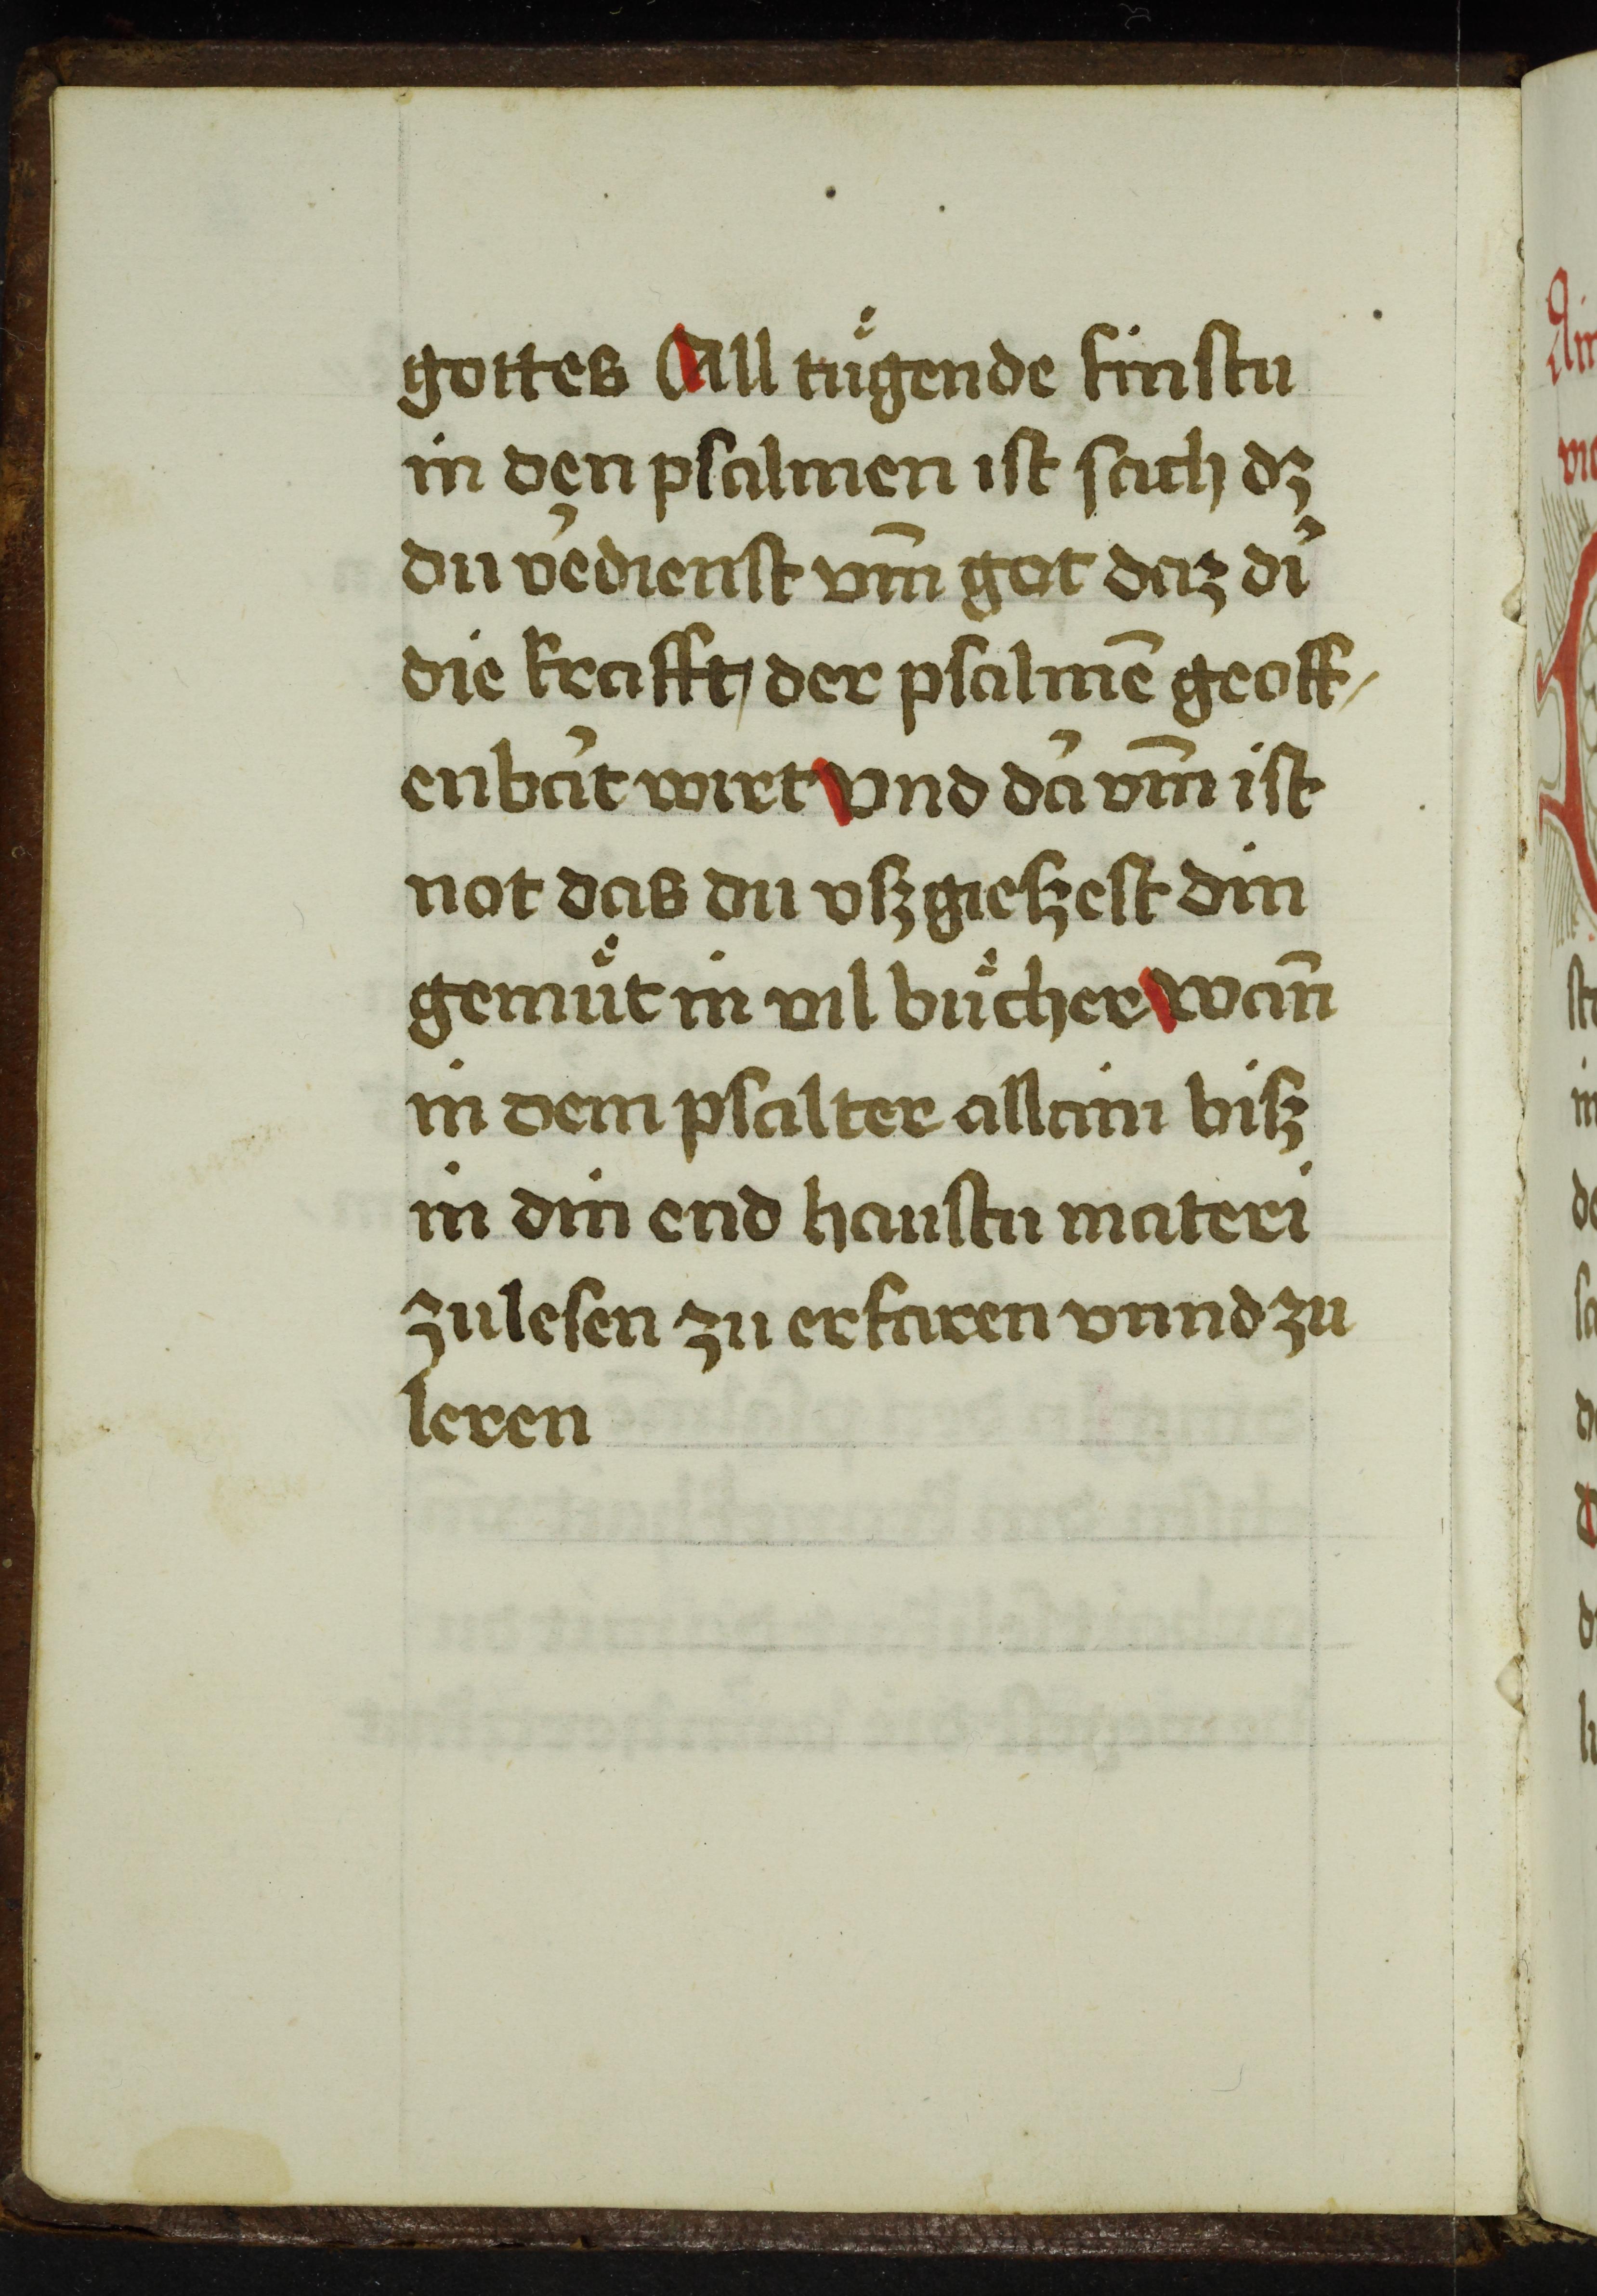 gottes All tuͤgende finstu
in den psalmen ist sach dz
du v̉edienst vm̄ got daz di̓
die krafft / der psalmē geoff /
enba̓t wirt vnd da̓ vm̄ ist
not das du vsz gieszest din
gemuͤt in vil buͤcher wan̄
in dem psalter allain bisz
in din end haustu materi
zulesen zu erfaren vnnd zu
leren